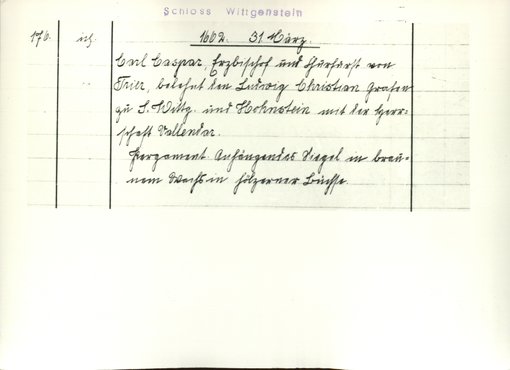 Schloss Wittgenstein
176.
1662. 31 März.
Carl Caspar, Erzbischof und Churfürst von
Trier, belehnt den Ludwig Christian Grafen
zu S. Wittg. und Hohnstein mit der Herr-
schaft Vallendar.
Pergament. Anhängendes Siegel in brau-
nem Wachs in hölzerner Büchse.